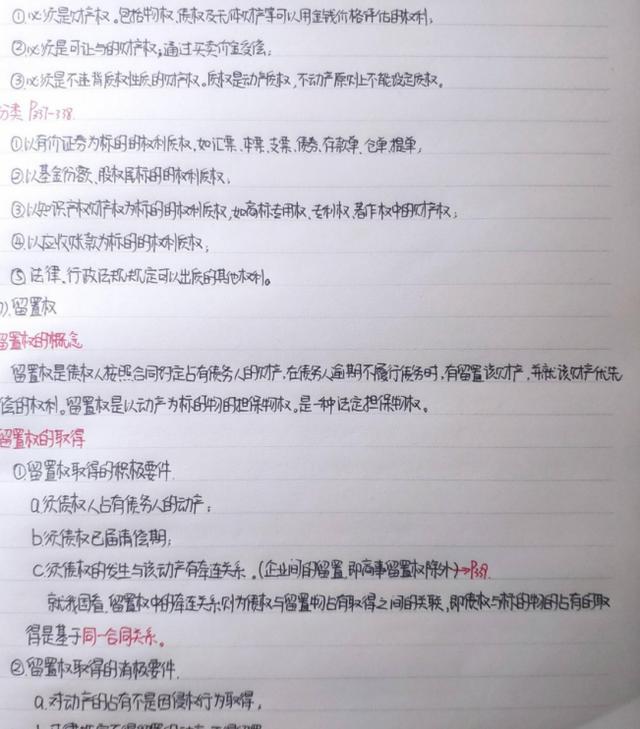 ①必须是财产权。包括物权、债权及无体财产等可以用金钱价格评估的权利;
②必须是可让与的财产权,通过买卖价金受偿;
③必须是不违背质权性质的财产权。质权是动产质权,不动产原则上不能设定质权。
分类 P337-338
①以有价证券为标的的权利质权,如汇票、本票、支票、债券、存款单、仓单、提单;
②以基金份额、股权为标的的权利质权;
③以知识产权财产权为标的的权利质权,如商标专用权、专利权、著作权中的财产权;
④以应收账款为标的的权利质权;
⑤法律、行政法规规定可以出质的其他权利。
).留置权
留置权的概念
留置权是债权人按照合同约定占有债务人的财产,在债务人逾期不履行债务时,有留置该财产,并就该财产优先
偿的权利。留置权是以动产为标的物的担保物权。是一种法定担保物权。
留置权的取得
①留置权取得的积极要件.
a.须债权人占有债务人的动产;
b.须债权已届清偿期;
c.须债权的发生与该动产有牵连关系。(企业间的留置,即商事留置权除外)→P339.
就我国看,留置权中的牵连关系则为债权与留置物占有取得之间的关联,即债权与标的物的占有的取
得是基于同一合同关系。
②留置权取得的消极要件.
a.对动产的占有不是因侵权行为取得,